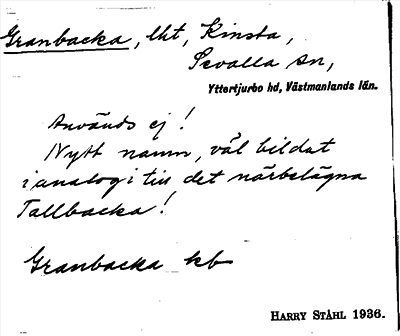 Granbacka, lht, Kinsta,
Sevalla sn,
Yttertjurbo hd, Västmanlands län.
Används ej!
Nytt namn, väl bildat
i analogi till det närbelägna
Tallbacka!
Granbacka kb
HARRY STÅHL 1936.